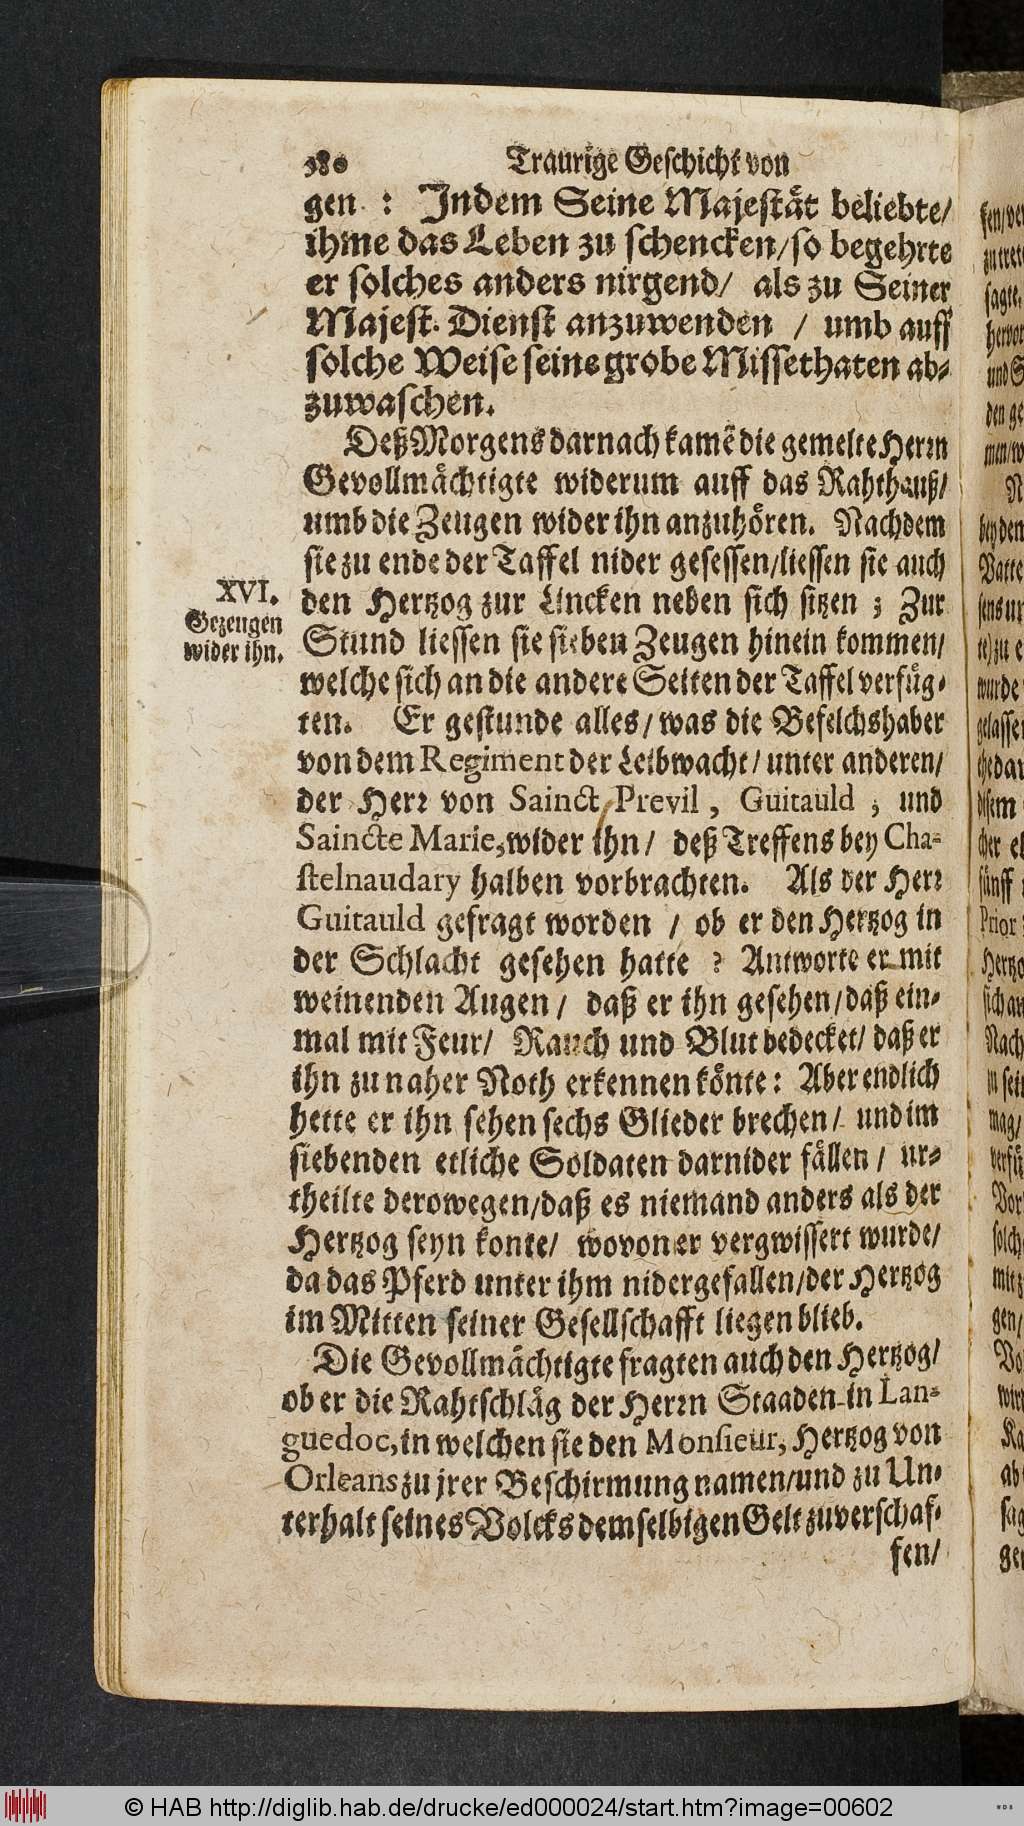 580 Traurige Geschicht von
gen : Indem Seine Majestät beliebte/
ihme das Leben zu schencken/so begehrte
er solches anders nirgend/ als zu Seiner
Majest. Dienst anzuwenden / umb auff
solche Weise seine grobe Missethaten ab-
zuwaschen.
Deß Morgens darnach kamẽ die gemelte Herrn
Gevollmächtigte widerum auff das Rahthauß/
umb die Zeugen wider ihn anzuhören. Nachdem
sie zu ende der Taffel nider gesessen/liessen sie auch
den Hertzog zur Lincken neben sich sitzen ; Zur
Stund liessen sie sieben Zeugen hinein kommen/
welche sich an die andere Seiten der Taffel verfüg-
ten. Er gestunde alles/was die Befelchshaber
von dem Regiment der Leibwacht/unter anderen/
der Herr von Sainct Previl, Guitauld , und
Saincte Marie, wider ihn/ deß Treffens bey Cha-
stelnaudary halben vorbrachten. Als der Herr
Guitauld gefragt worden / ob er den Hertzog in
der Schlacht gesehen hatte ? Antworte er mit
weinenden Augen/ daß er ihn gesehen/daß ein-
mal mit Feur/ Rauch und Blut bedecket/daß er
ihn zu naher Noth erkennen könte: Aber endlich
hette er ihn sehen sechs Glieder brechen/ und im
siebenden etliche Soldaten darnider fällen/ ur-
theilte derowegen/daß es niemand anders als der
Hertzog seyn konte/ wovon er vergwissert wurde/
da das Pferd unter ihm nidergefallen/der Hertzog
im Mitten seiner Gesellschafft liegen blieb.
Die Gevollmächtigte fragten auch den Hertzog/
ob er die Rahtschläg der Herrn Staaden in Lan-
guedoc, in welchen sie den Monsieur, Hertzog von
Orleans zu jrer Beschirmung namen/und zu Un-
terhalt seines Volcks demselbigen Gelt zuverschaf-
fen/
XVI.
Gezeugen
wider ihn.
© HAB http://diglib.hab.de/drucke/ed000024/start.htm?image=00602